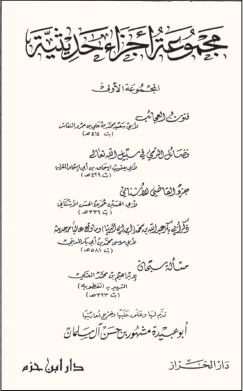 مجموعة أجزاء حديثية
المجموعة الأولى
فنون العجائب
لأبي سعيد محمد بن علي بن عمرو النقاش
(ت ٤١٤ هـ)
فضائل الرمي في سبيل الله تعالى
لأبي يعقوب إسحاق بن أبي إسحاق القراب
(ت ٤٢٩ هـ)
جزء القاضي الأشناني
لأبي الحسين عمر بن الحسن الأشناني
(ت ٣٣٩ هـ)
ذكر أبي بكر عبد الله بن محمد ابن أبي الدنيا وما وقع عاليا من حديثه
لأبي موسى محمد بن أبي بكر المديني
(ت ٥٨١ هـ)
مسألة سبحان
لإبراهيم بن محمد العتكي
الشهير بـ (نفطويه)
(ت ٣٢٣ هـ)
قدم لها وعلق عليها وخرج أحاديثها
أبو عبيدة مشهور بن حسن آل سلمان
دار الخراز
دار ابن حزم